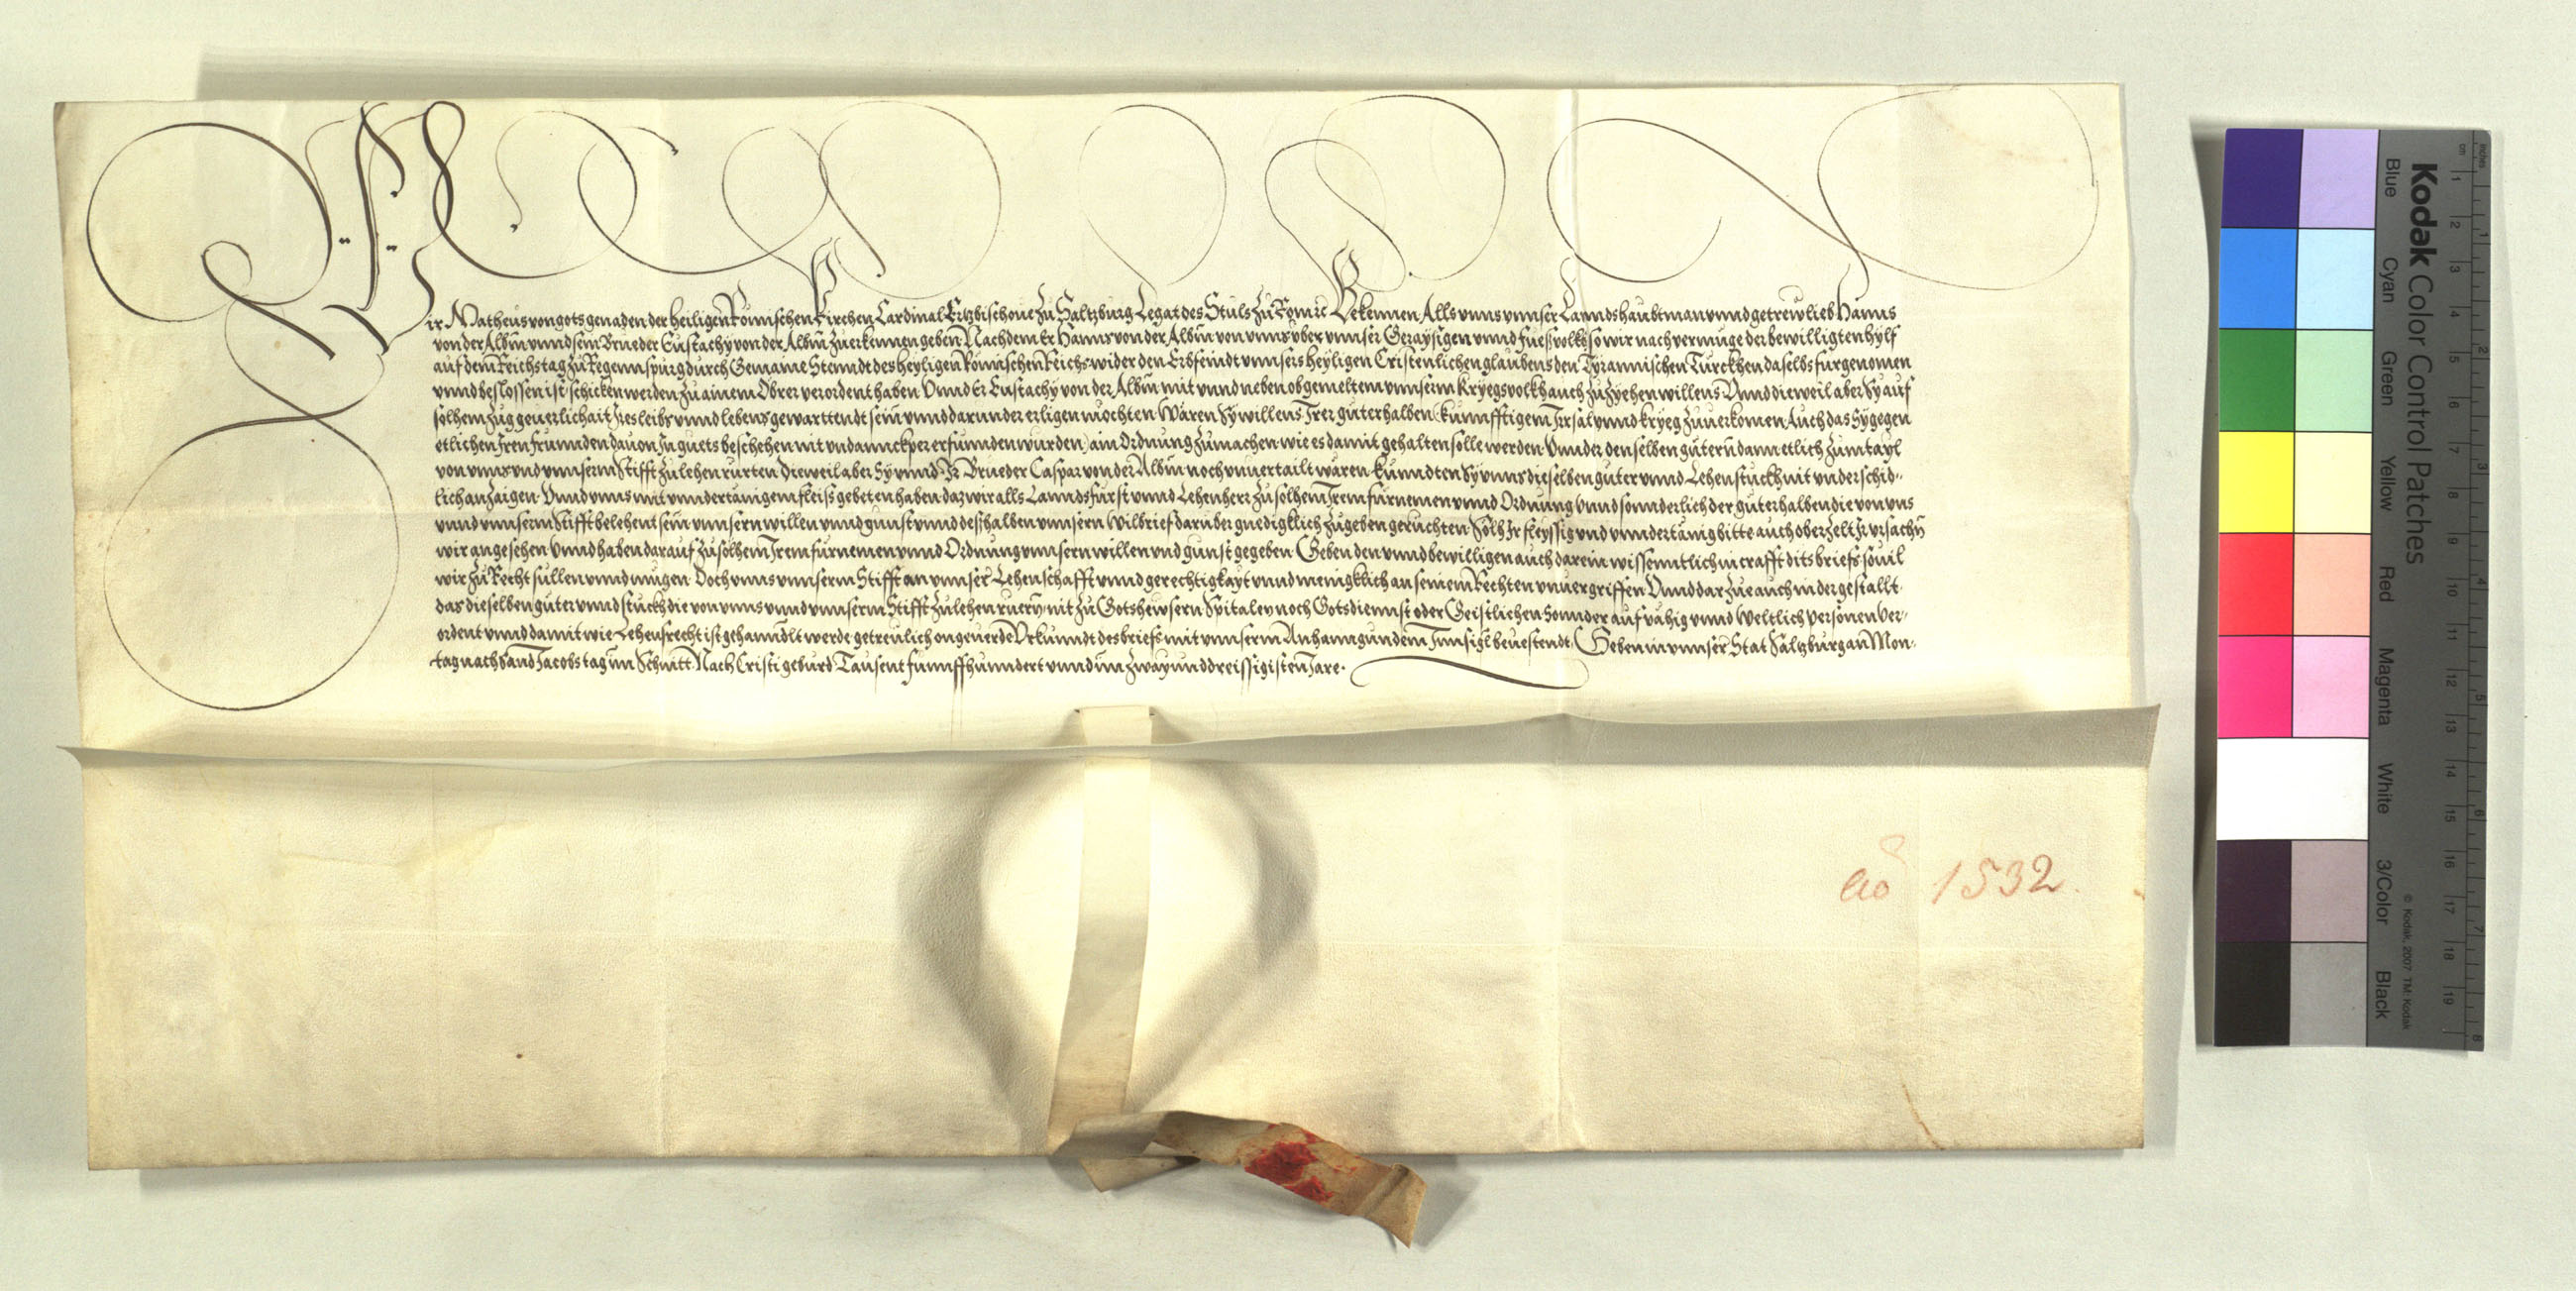 Wir Matheus von gots genaden der heiligen Römischen Kirchen Cardinal Ertzbischove zu Saltzburg Legat des Stuls zu Rom rc Bekennen Alls unns unnser Lanndshaubtman unnd getrew lieb Hanns
von der Albm unnd sein Brueder Eustachy von der Albm zuerkennen geben Nachdem Er Hanns von der Albm von unns über unnser Geraysigen unnd fuessvolkh so wir nach vermuge der bewilligten hylf
auf dem Reichstag zu Regennspurg durch Gemaine Stenndt des heyligen Römischen Reichs wider den Erbfeindt unnsers heyligen Cristenlichen glaubens den Tyrannischen Turckhen daselbs furgenomen
unnd beslossen ist schicken werden zu ainem Obrer verordent haben Unnd Er Eustachy von der Albm mit unnd neben obgemeltem unnserm Kryegsvolkh auch zu zyehen willens Unnd dieweil aber Sy auf
solhem zug geuerlichait Jres leibs unnd lebens gewarttendt sein unnd darunder erligen möchten Wären Sy willens Irer guter halben kunnfftigem Irrsal unnd kryeg zuuerkomen Auch das Sy gegen
etlichen Iren freunnden davon In guets beschehen nit undannckper erfunnden wurden ain Ordnung zumachen wie es damit gehalten solle werden Unnder denselben gütern dann etlich zum tayl
von unns und unnserm Stifft zu lehen rürten Dieweil aber Sy unnd Ir Brueder Caspar von der Albm noch unuertailt wären kunndten Sy unns dieselben guter unnd Lehenstuckh nit underschid-
lich anzaigen Unnd unns mit unndertänigem fleiss gebeten haben daz wir alls Lanndsfürst unnd Lehenherr zu solhem Irem furnemen unnd Ordnung Unnd sonnderlich der guter halben die von uns
unnd unnserm Stifft belehent sein unnsern willen unnd gunst unnd desshalben unnsern Wilbrief daruber gnedigklich zugeben geruchten Solh Ir fleyssig und unndertänig bitte auch oberzelt Ir ursachn
wir angesehen Unnd haben darauf zu solhem Irem furnemen unnd Ordnung unnsern willen und gunst gegeben Geben den unnd bewilligen auch darein wissenntlich in crafft dits briefs souil
wir zu Recht sullen unnd mugen Doch unns unnserm Stifft an unnser Lehenschafft unnd gerechtigkayt unnd menigklich an seinem Rechten unuergriffen Unnd darzue auch in der gestallt
das dieselben guter unnd stuckh die von unns unnd unnserm Stifft zu lehen ruern nit zu Gotshewsern Spitalen noch Gotsdiennst oder Geistlichen Sonnder auf vähig unnd Weltlich personen ver-
ordent unnd damit wie Lehensrecht ist gehanndlt werde getreulich on geuerde Urkunndt des briefs mit unnserm Anhanngundem Innsigl beuestendt Geben in unnser Stat Saltzburg an Mon-
tag nach Sand Jacobs tag im Schnitt Nach Cristi geburd Tausent funnffhunndert unnd im zway und dreissigisten Jare.
Ao 1532.
Kodak Color Control Patches
Blue Cyan Green Yellow Red Magenta White 3/Color Black
© Kodak, 2007 TM: Kodak
inches 1 2 3 4 5 6 7 8
cm 1 2 3 4 5 6 7 8 9 10 11 12 13 14 15 16 17 18 19